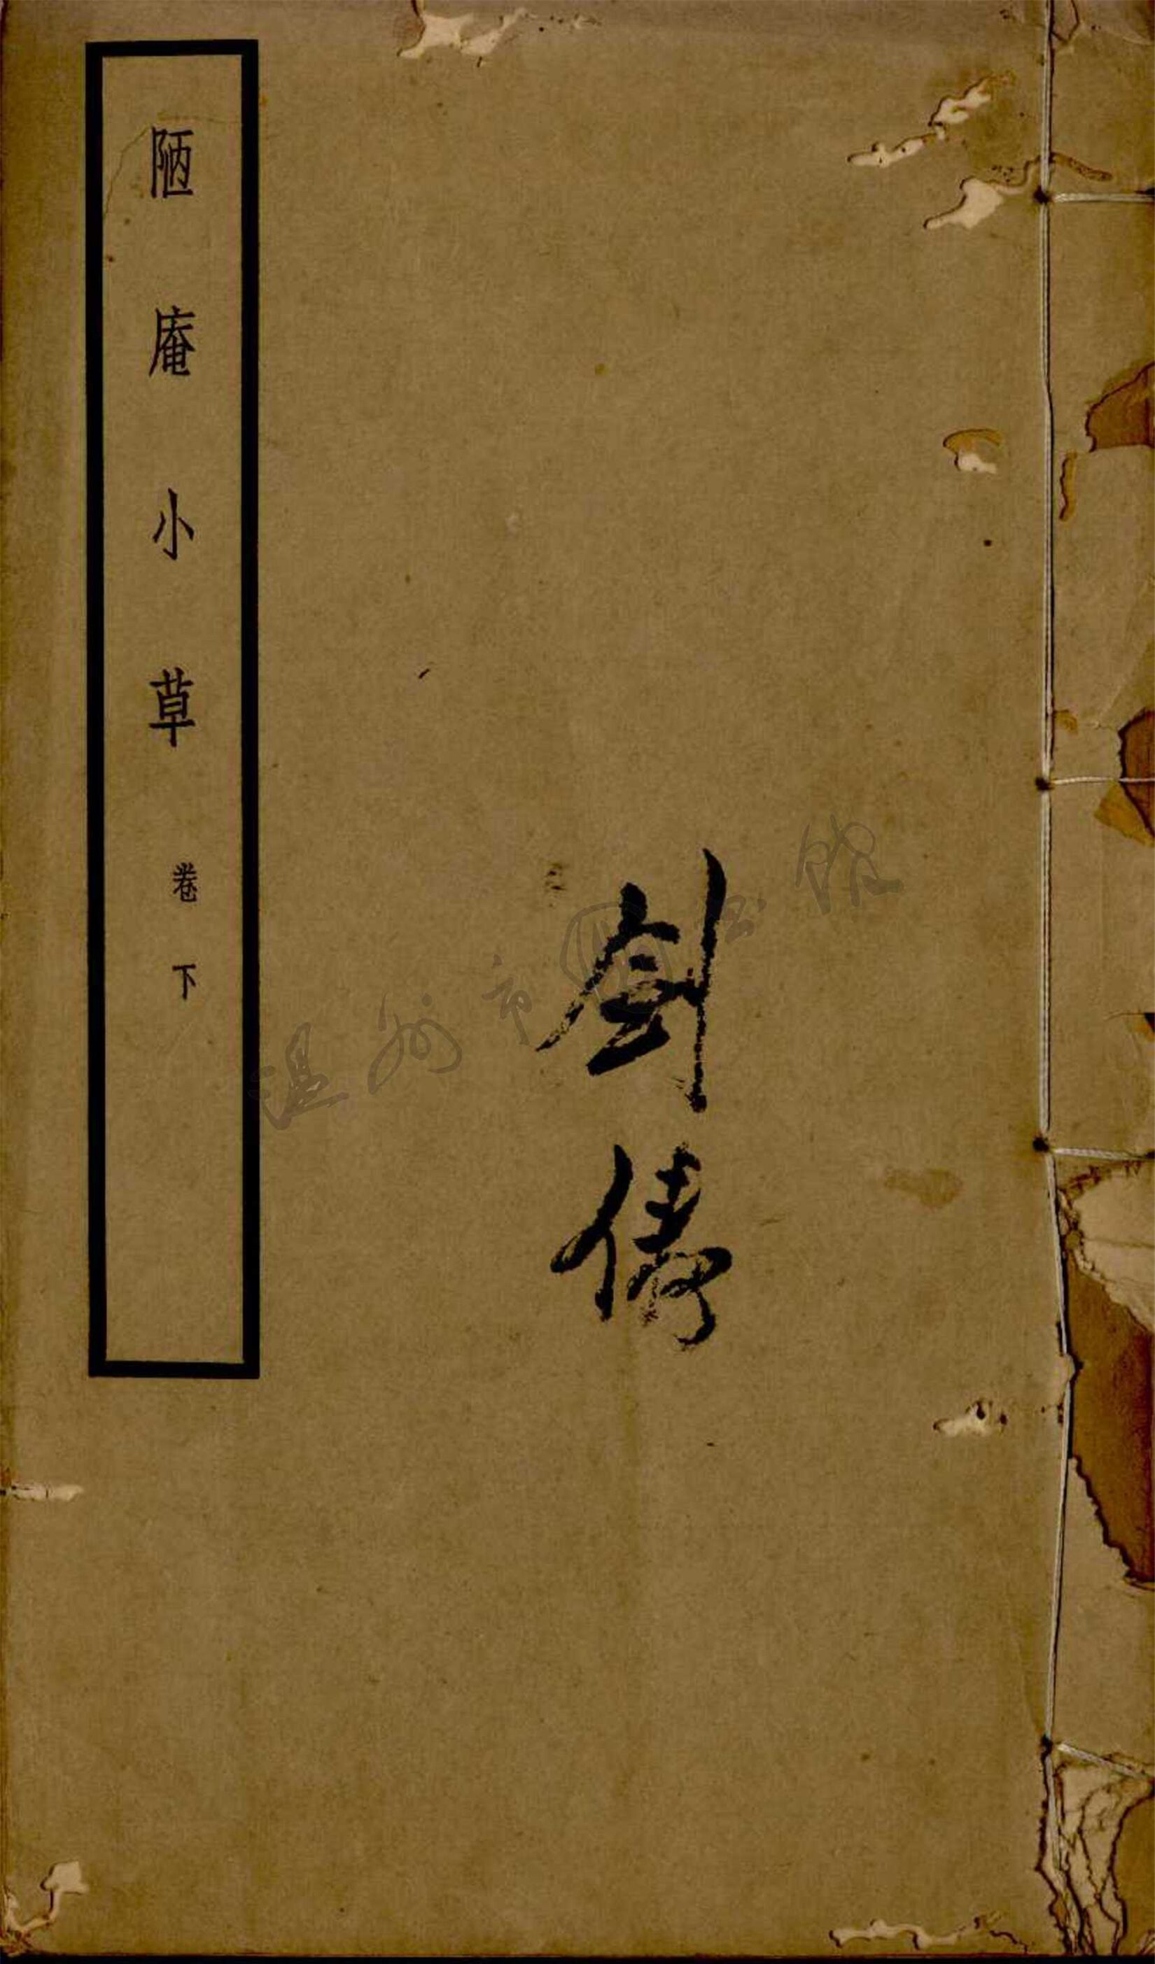 陋庵小草 卷下
劍儔
温州市图书馆